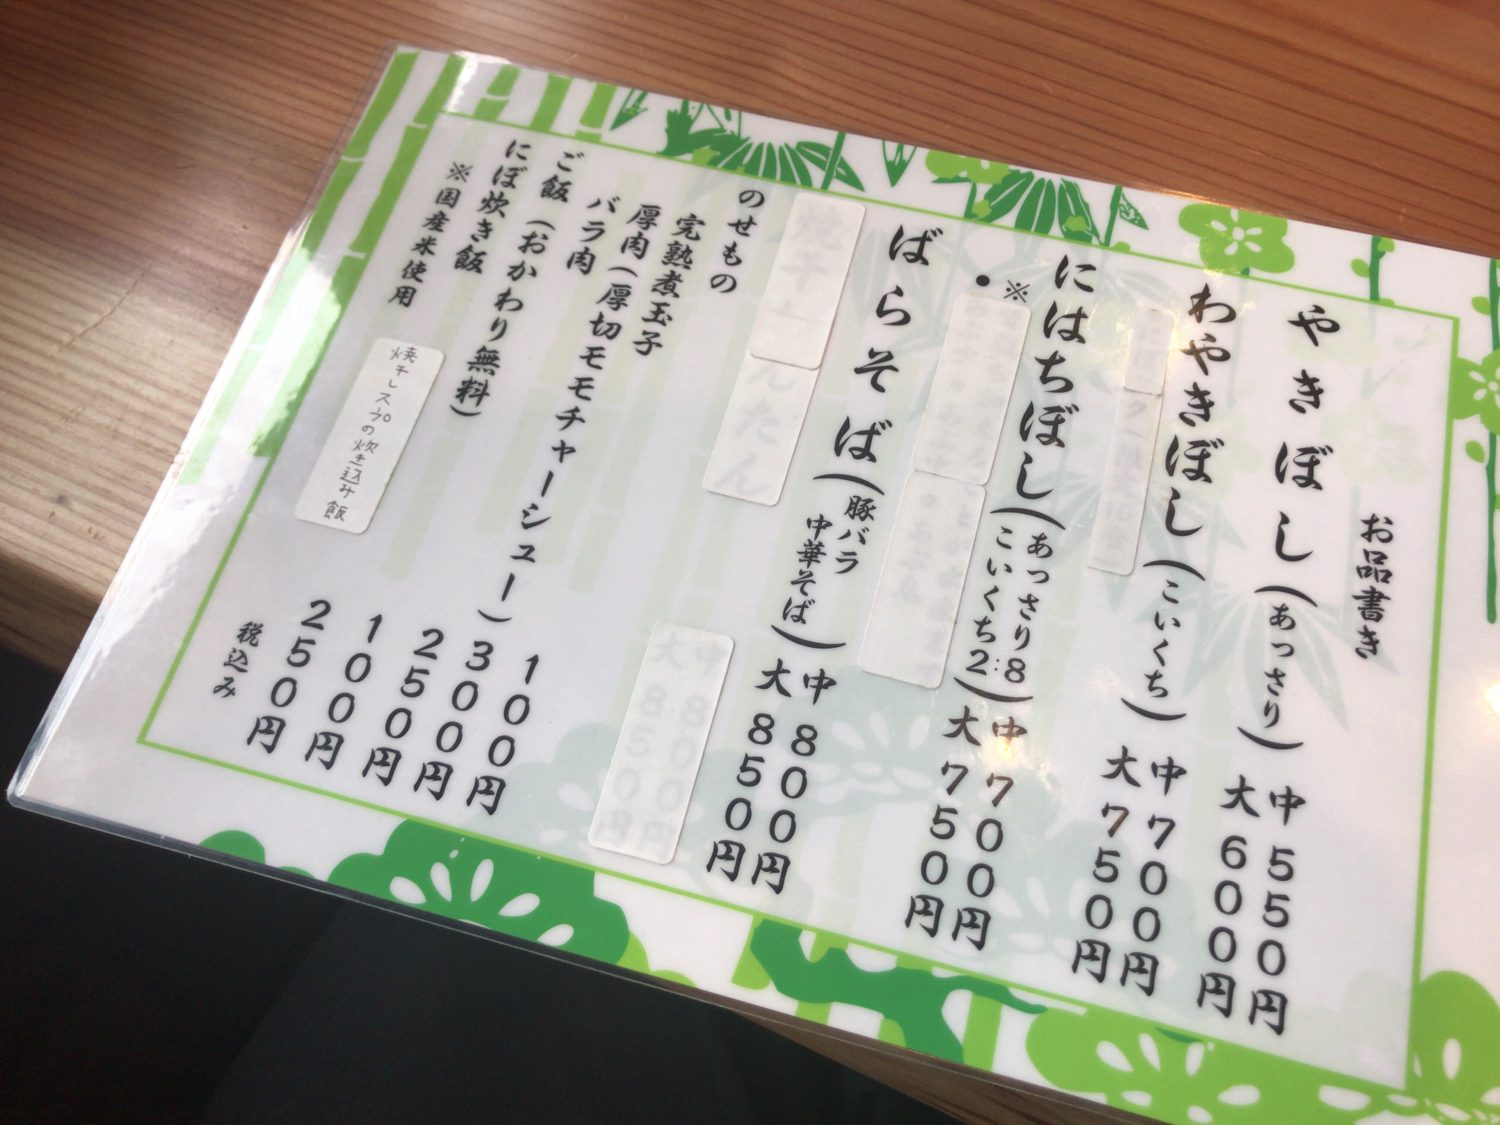 お品書き
やきぼし(あっさり) 中550円
大600円
わやきぼし(こいくち) 中700円
大750円
にはちぼし(あっさり8:こいくち2) 中700円
大750円
※
・
ばらそば(豚バラ中華そば) 中800円
大850円
中800円
大850円
のせもの
完熟煮玉子 100円
厚肉(厚切モモチャーシュー) 300円
バラ肉 250円
ご飯(おかわり無料) 100円
にぼ炊き飯 250円
※国産米使用
焼干しスープの炊き込み飯
税込み